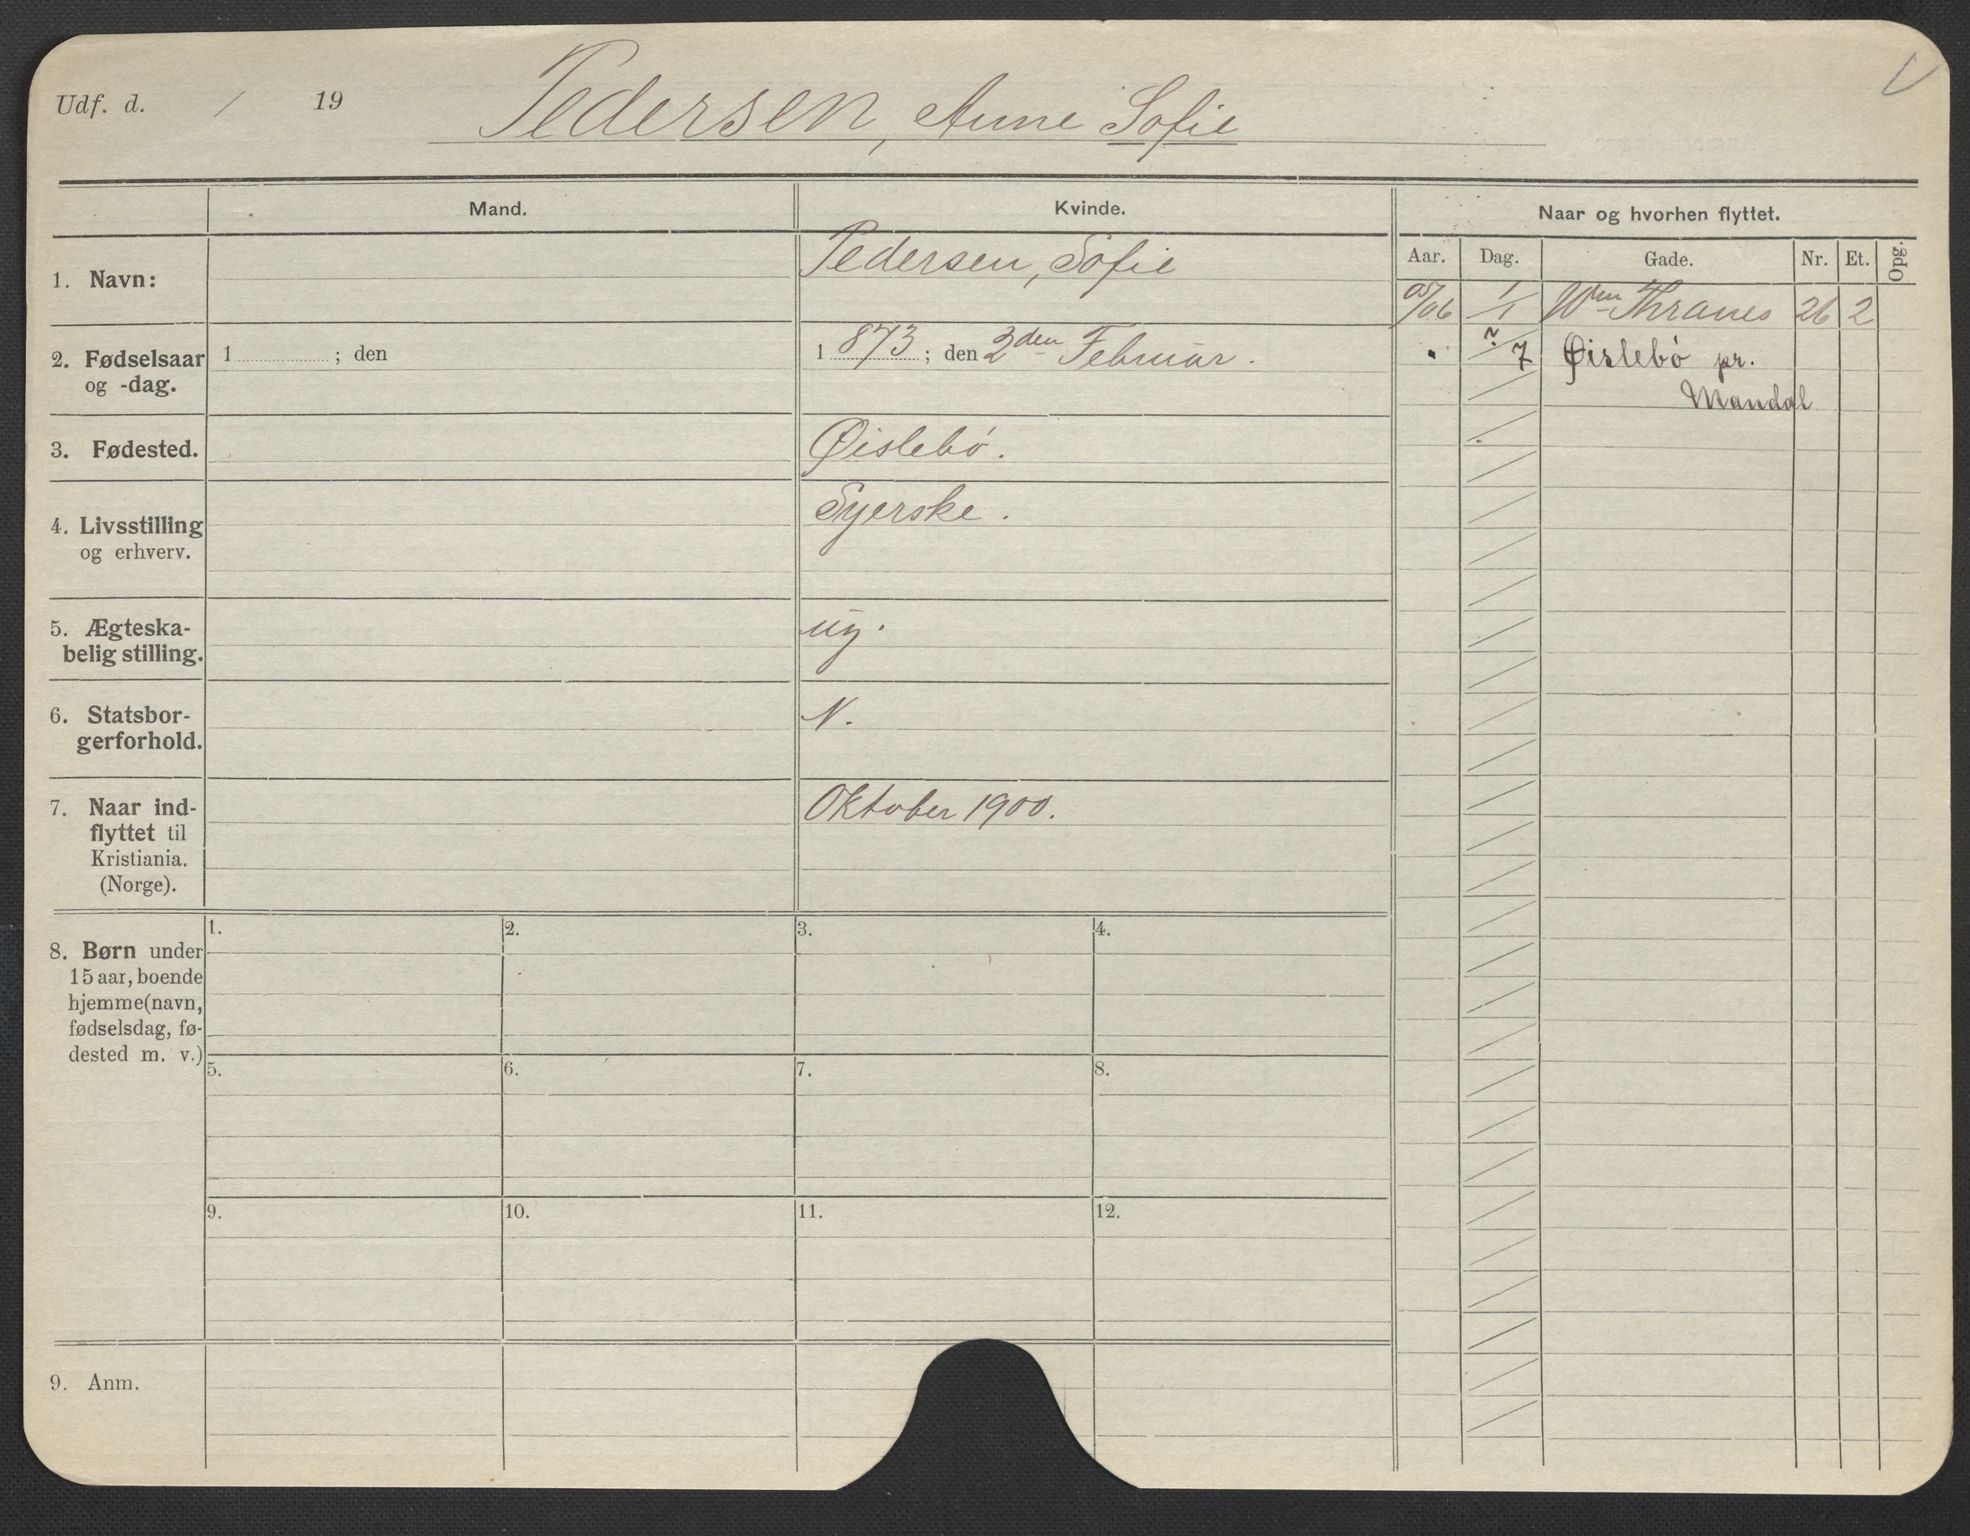 Udf. d. / 19
Pedersen, Anne Sofie
Mand.
Kvinde.
Naar og hvorhen flyttet.
Aar. Dag. Gade. Nr. Et. Opg.
1. Navn:
Pedersen, Sofie
05/06 1/1 Wm Thranes 26 2
2. Fødselsaar
og -dag.
1 ; den
1 873 ; den 2den Februar.
" ?/7 Øislebö pr.
Mandal
3. Fødested.
Øislebö.
4. Livsstilling
og erhverv.
Syerske.
5. Ægteska-
belig stilling.
ug.
6. Statsbor-
gerforhold.
N.
7. Naar ind-
flyttet til
Kristiania.
(Norge).
Oktober 1900.
8. Børn under
15 aar, boende
hjemme (navn,
fødselsdag, fø-
dested m. v.)
1. 2. 3. 4.
5. 6. 7. 8.
9. 10. 11. 12.
9. Anm.